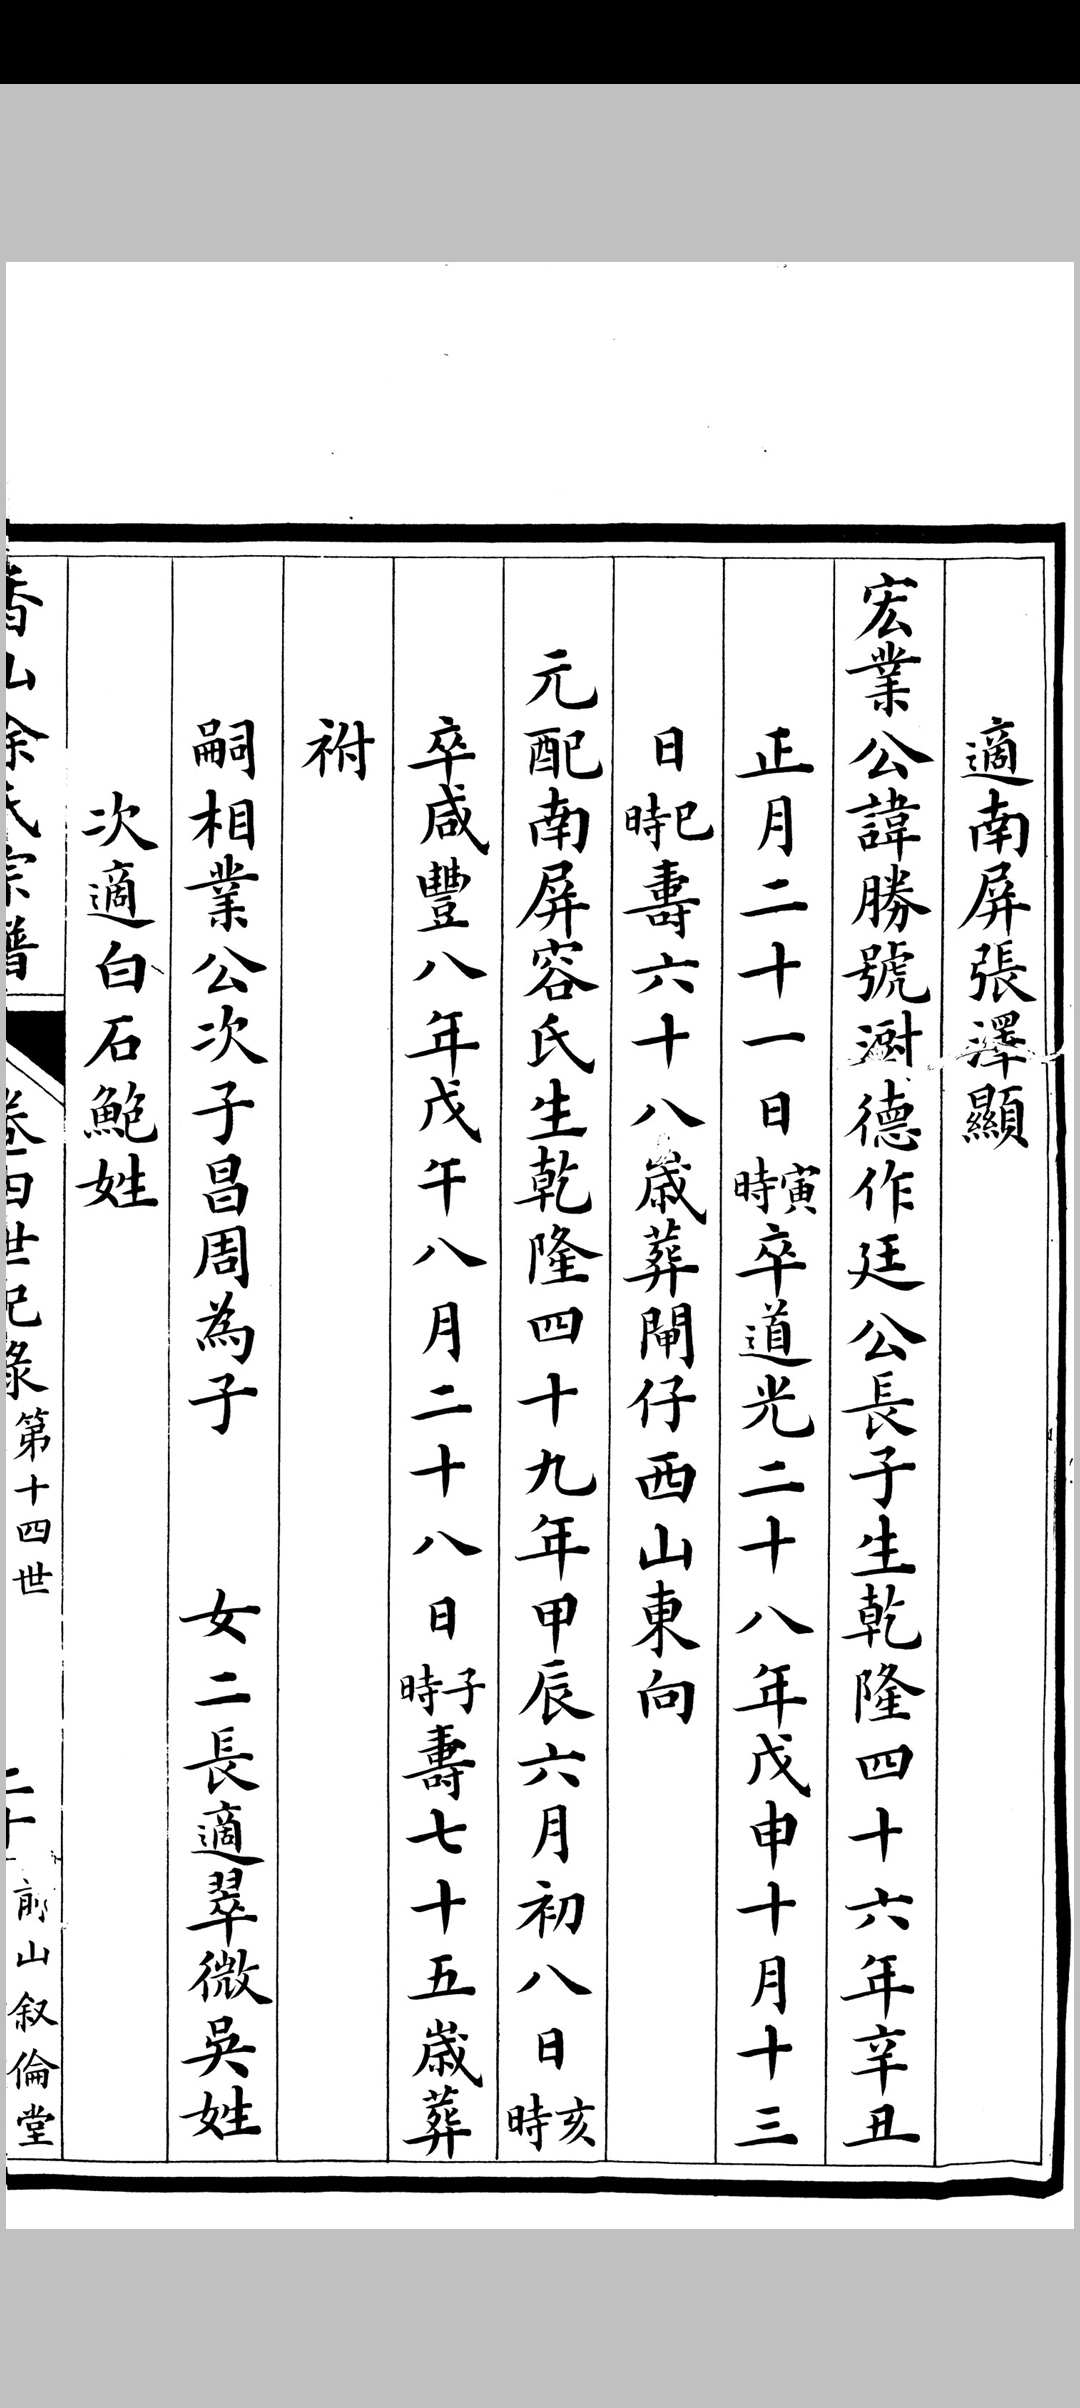 適南屏張澤顯
宏業公諱勝號澍德作廷公長子生乾隆四十六年辛丑
正月二十一日寅時卒道光二十八年戊申十月十三
日巳時壽六十八歲葬閘仔西山東向
元配南屏容氏生乾隆四十九年甲辰六月初八日亥時
卒咸豐八年戊午八月二十八日子時壽七十五歲葬
祔
嗣相業公次子昌周為子 女二長適翠微吳姓
次適白石鮑姓
香山徐氏宗譜 卷四世紀錄 第十四世 二十 前山叙倫堂